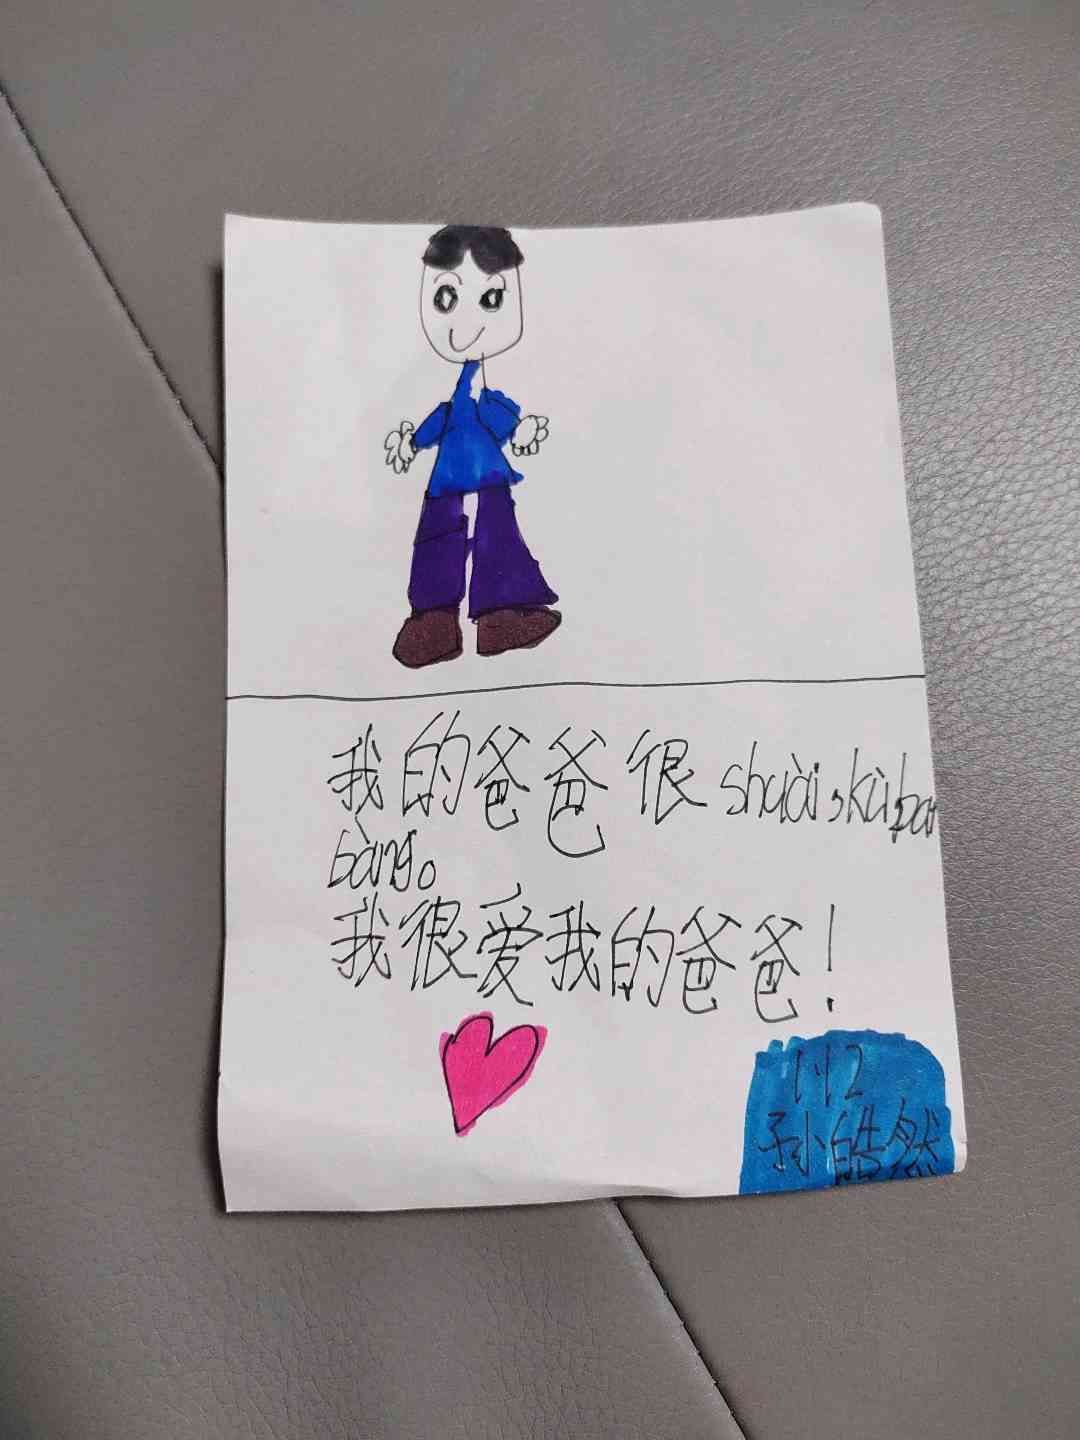 我的爸爸很shuài,kù,bàn
bàng。
我很爱我的爸爸!
1、12
孙皓然